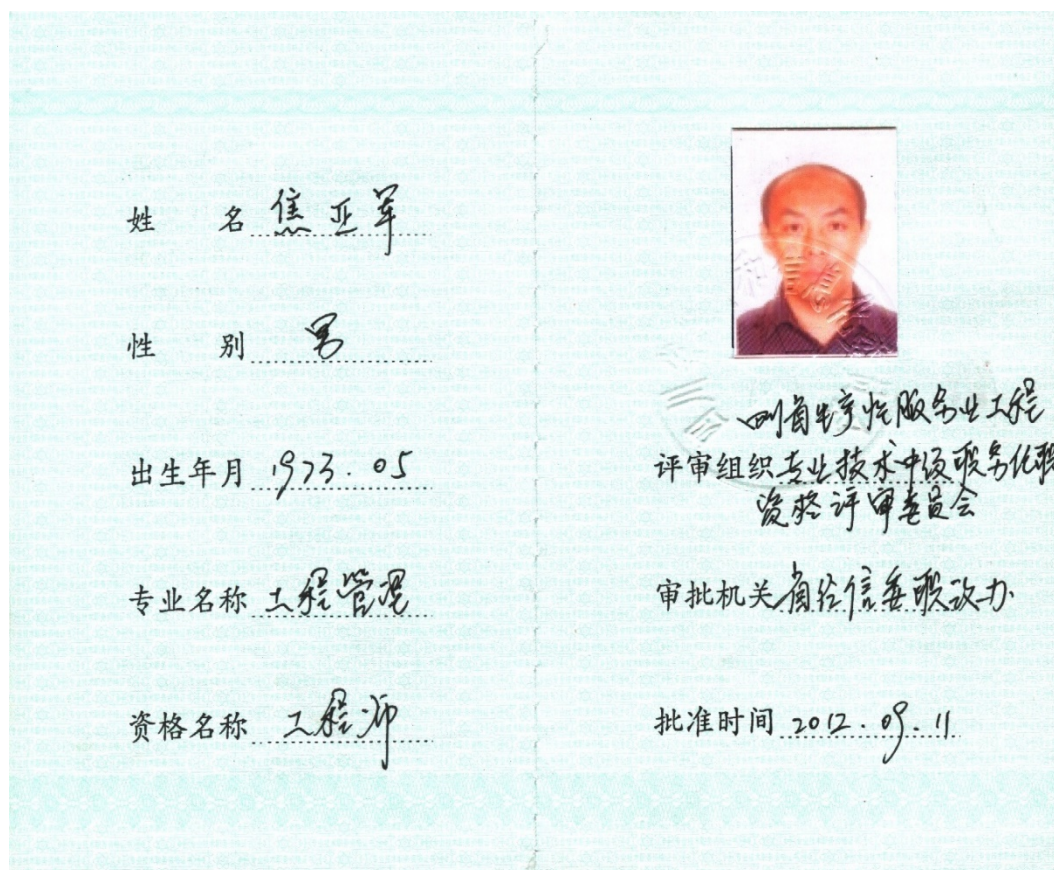 姓名 焦亚军
性别 男
出生年月 1973.05
专业名称 工程管理
资格名称 工程师
四川省生产性服务业工程
评审组织 专业技术中级职务任职
资格评审委员会
审批机关 省经信委职改办
批准时间 2012.09.11